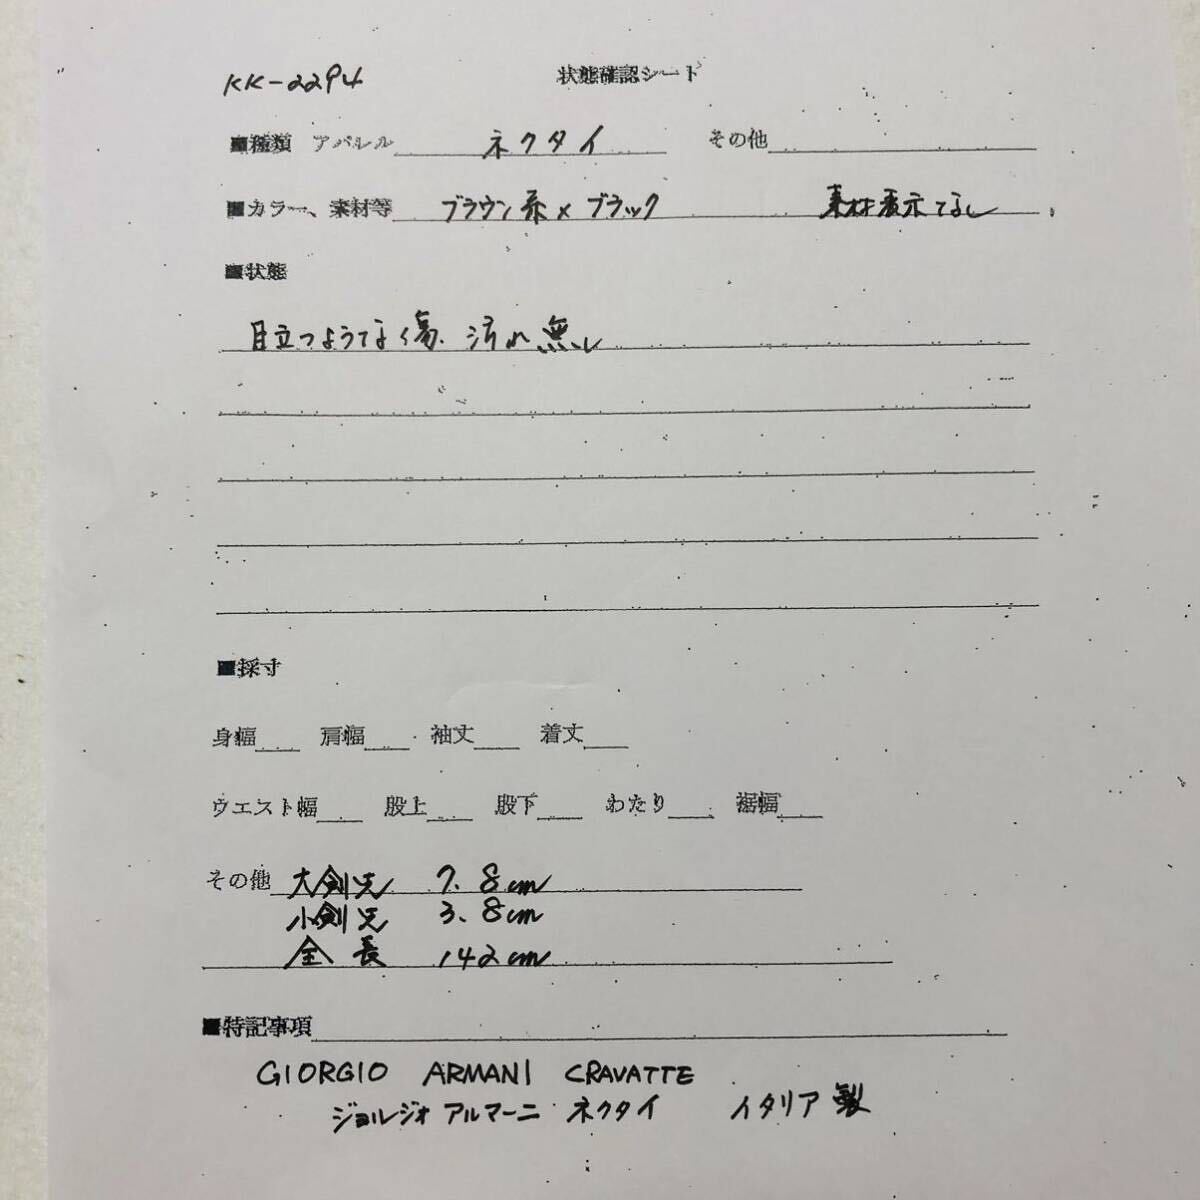 KK-2294 状態確認シート
■種類 アパレル ネクタイ その他
■カラー、素材等 ブラウン系×ブラック 素材表示なし
■状態
目立つような傷、汚れ無し
■採寸
身幅 肩幅 袖丈 着丈
ウエスト幅 股上 股下 わたり 裾幅
その他 大剣先 7.8cm
小剣先 3.8cm
全長 142cm
■特記事項
GIORGIO ARMANI CRAVATTE
ジョルジオ アルマーニ ネクタイ イタリア製